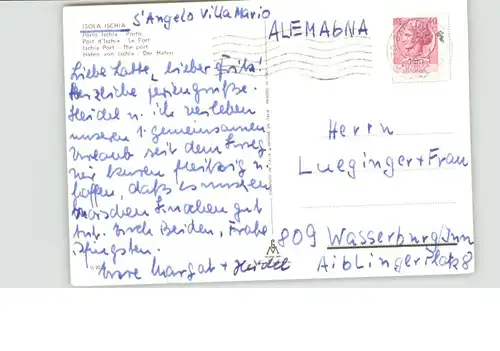 S'Angelo Villa Mario
ISOLA ISCHIA
Porto Ischia - Porto
Port d'Ischia - Le Port
Ischia Port - The port
Hafen von Ischia - Der Hafen
ALEMAGNA
Liebe Lotte, lieber Fritz!
Herzliche Feriengrüße.
Heidel u. ich verleben
unseren 1. gemeinsamen
Urlaub seit dem Krieg
wir kuren fleißig u.
hoffen, daß es unseren
Knochen gut
tut. Euch Beiden, Frohe
Pfingsten.
Eure Margot + Heidel
Herrn
Lueginger + Frau
809 Wasserburg/Inn
Aiblingerplatz 8